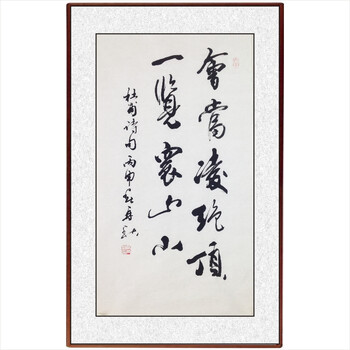 會當凌絕頂
一覽衆山小
杜甫詩句丙申